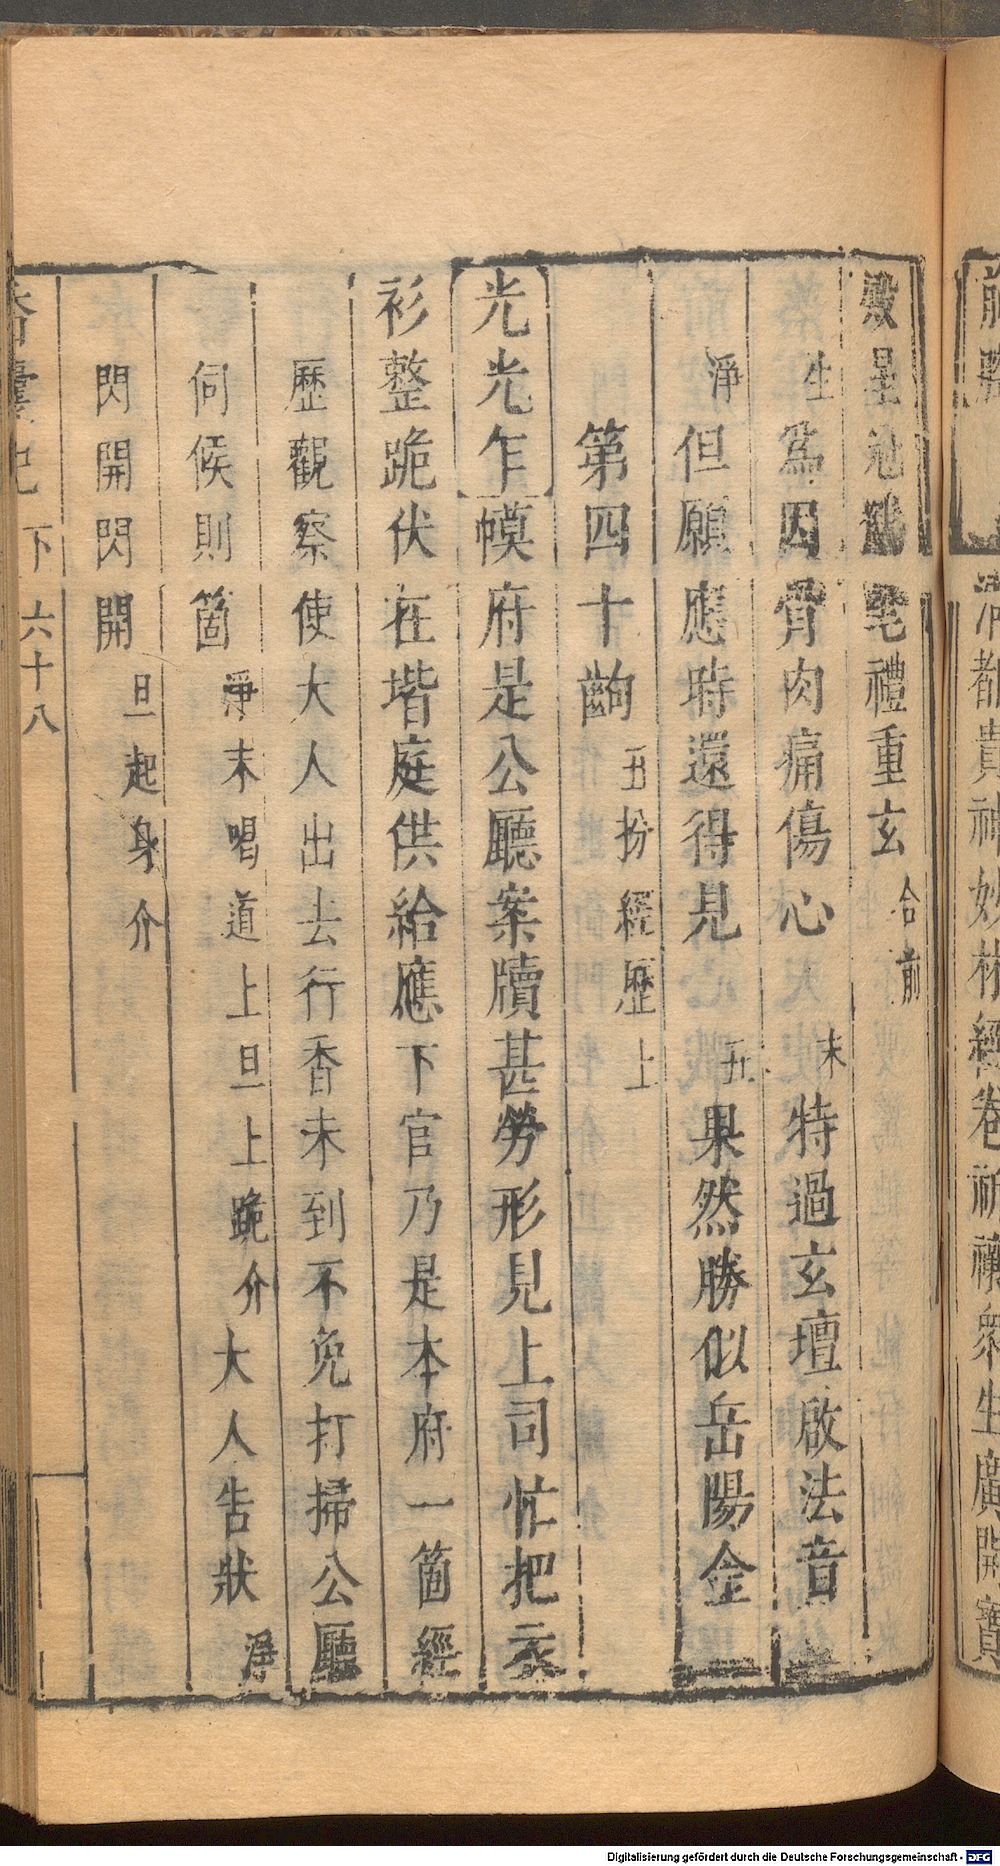 清都貴神妙林經卷祈禳衆生廣開寶
殿星冠鶴氅禮重玄合前
生爲因骨肉痛傷心末特過玄壇啟法音
淨但願應時還得見丑果然勝似岳陽金
第四十齣丑扮經歷上
光光乍幙府是公廳案牘甚勞形見上司忙把衣
衫整跪伏在堦庭供給應下官乃是本府一箇經
歷觀察使大人出去行香未到不免打掃公廳
伺候則箇淨末唱道上旦上跪介大人告狀淨
閃開閃開旦起身介
香囊記 下 六十八
Digitalisierung gefördert durch die Deutsche Forschungsgemeinschaft - DFG